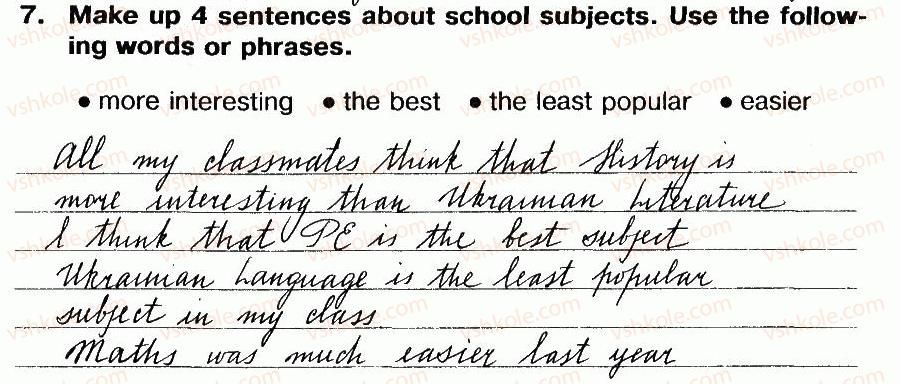 7. Make up 4 sentences about school subjects. Use the follow-
ing words or phrases.
• more interesting • the best • the least popular • easier
All my classmates think that History is
more interesting than Ukrainian Literature
I think that PE is the best subject
Ukrainian Language is the least popular
subject in my class
Maths was much easier last year
vshkole.com